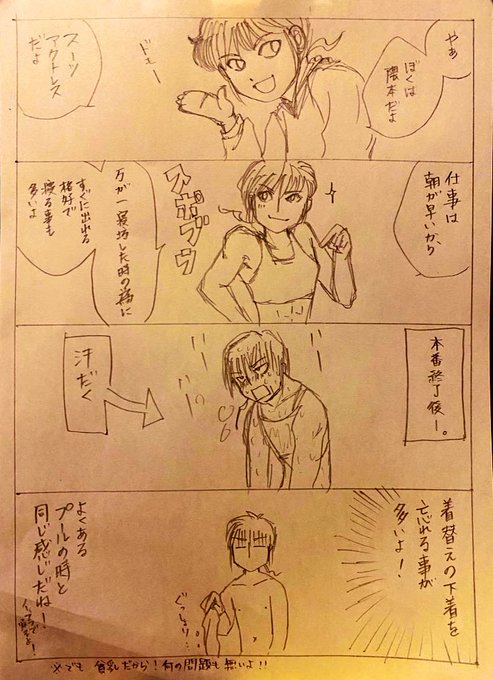 やぁ
ぼくは
隈本だよ
スーツ
アクトレス
だよ
仕事は
朝が早いから
スポブラ
万が一寝坊した時の為に
すぐに出れる
格好で
寝る事も
多いよ
本番終了後ー。
汗だく
着替えの下着を
忘れる事が
多いよ!
ぐっしょり…
よくある
プールの時と
同じ感じだね!
※でも 貧乳だから!何の問題も無いよ!!